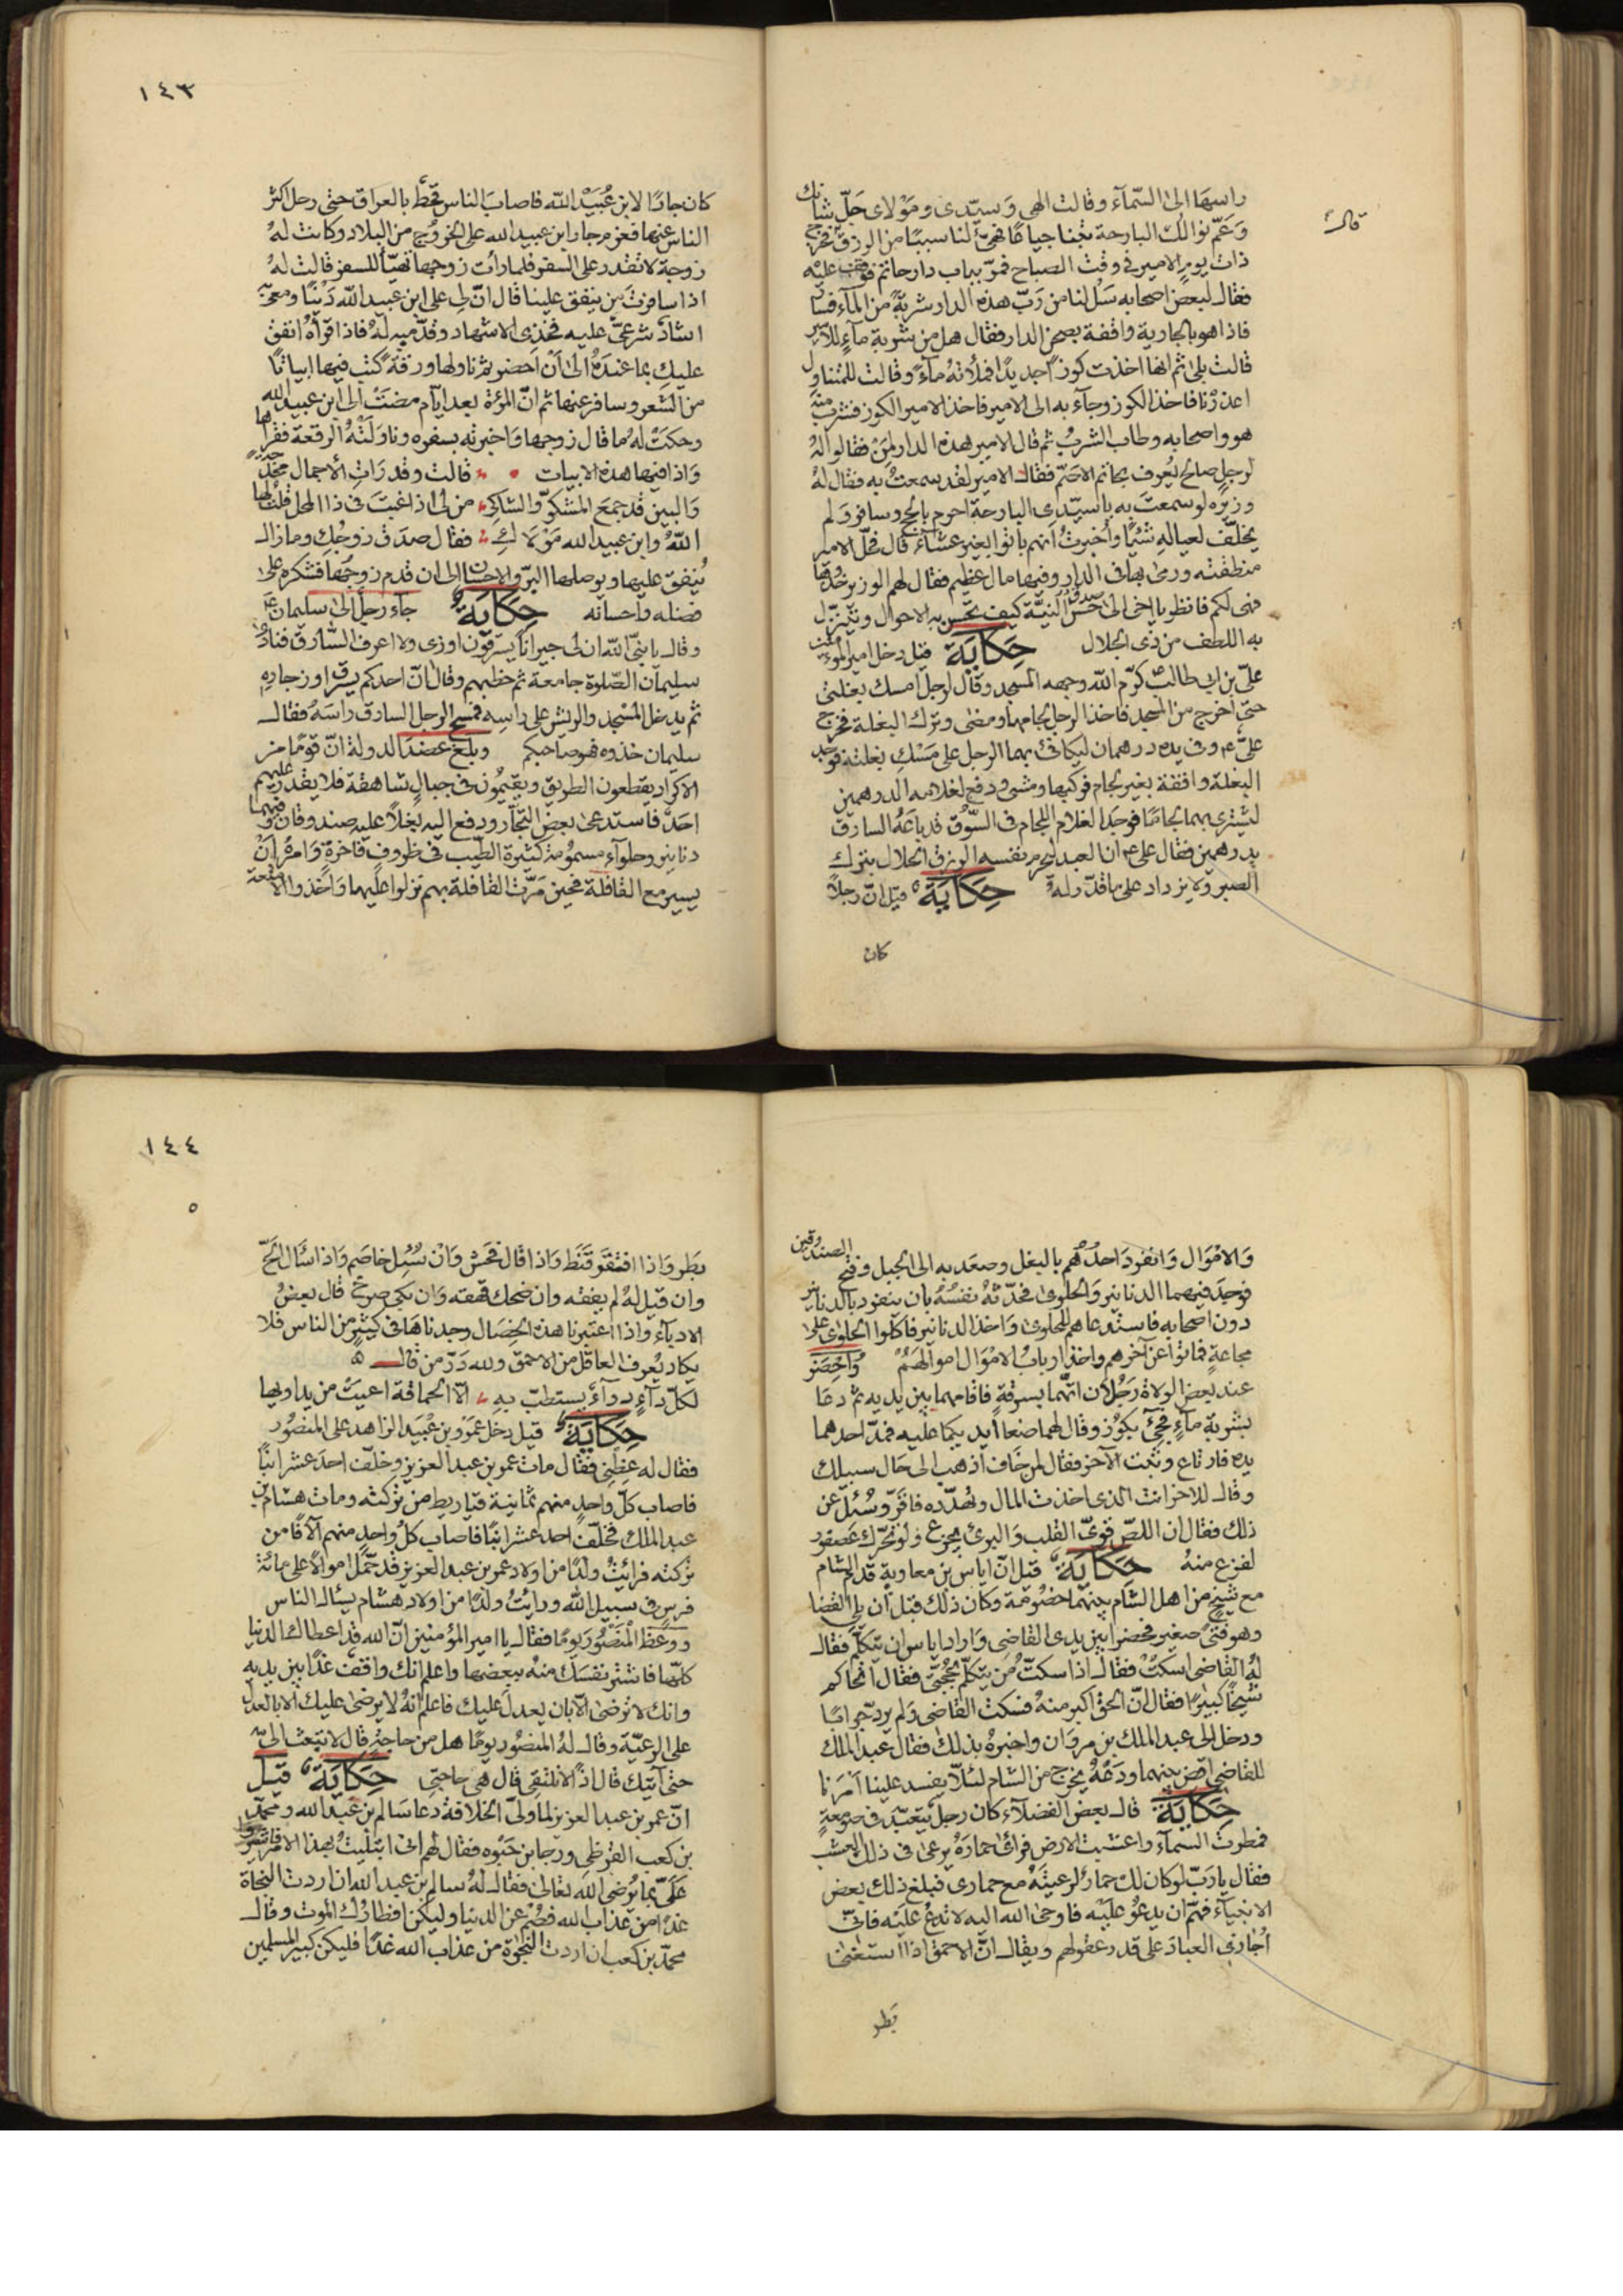 راسها الى السّمآء وقالت الهى وسيّدى ومولاى جلّ شانك
وعمّ نوالك البارحة بتنا جياعًا فهيّء لنا سببًا من الرزق فخرج
قال
ذات يوم الامير فى وقت الصباح فمرّ بباب دار حاتم فوقف عليه
فقال لبعض اصحابه سَل لنا من رَبّ هذه الدار شربةً من المآء فسار
فاذا هو بالجارية واقفة بصحن الدار فقال هل من شربة مآءٍ للامير
قالت بلى ثم انها اخذت كوزًا جديدًا فملأته مآءً وقالت للمتناول
اعذرنا فاخذ الكوز وجآء به الى الامير فاخذ الامير الكوز فشرب منه
هو واصحابه وطاب الشربُ ثم قال الامير لهذه الدار لمن فقالوا له
لرجلٍ صالح يُعرف بحاتم الاصمّ فقال الامير لقد سمعتُ به فقال له
وزيره لو سمعتَ به ياسيّدى البارحة احرم بالحج وسافر ولم
يخلّف لعياله شئيًا وأخبرتُ انهم باتوا بغير عشآء قال فحلّ الامير
منطقته ورمى بها فى الدار وفيها مال عظيم فقال لهم الوزير خذوها
فهى لكم فانظر يا اخى الى حسن النيّة كيف تحسن به الاحوال ويتنزّل
به اللطف من ذى الجلال حكاية قيل دخل امير المؤمنين
علىّ بن ابى طالب كرّم الله وجهه المسجد وقال لرجل امسك بغلتى
حتى اخرج من المسجد فاخذ الرجل لجامها ومضى وترك البغلة فخرج
علىّ ع‍م وفى يده درهمان ليكافئ بهما الرجل على مَسْك بغلته فوجد
البغلة واقفة بغير لجام فركبها ومشى ودفع لغلامه الدرهمين
ليشترى بهما لجامًا فوجد الغلام اللجام فى السّوق قد باعَه السارق
بدرهمين فقال على ع‍م ان العبد ليحرم نفسه الرزق الحلال بترك
الصبر ولا يزداد على ما قدّر له حكاية قيل انّ رجلاً
كان
١٤٣
كان جارًا لابن عُبَيْد الله فاصاب الناس قحط بالعراق حتى رحل اكثر
الناس عنها فعزم جار ابن عبيد الله على الخروج من البلاد وكانت له
زوجة لا تقدر على السفر فلما رأت زوجها تهيّأ للسفر قالت له
اذا سافرتَ من ينفق علينا قال انّ لى على ابن عبيد الله دَيْنًا ومعى
اشهاد شرعىّ عليه فخذى الاشهاد وقدّميه له فاذا قرأهُ انفق
عليك بما عنده الى أن أحضر ثم ناولها ورقةً كتب فيها ابياتًا
من الشعر وسافر عنها ثم انّ المرئة بعد ايام مضت الى ابن عبيد الله
وحكت له ما قال زوجها واخبرته بسفره وناولته الرقعة فقرأها
واذا فيها هذه الابيات قالت وقد رات الأجمال محدجة
والبين قد جمع المشكوّ والشاكى من لى اذا غبت فى ذا المحل قلت لها
اللّهُ وابن عبيد الله مولاكى فقال صدق زوجُكِ وما زال
يُنفق عليها ويوصلها البرّ والاحسان الى ان قدم زوجها فشكره على
فضله واحسانه حكاية جآء رجلٌ الى سليمان ع‍م
وقال يا نبىّ الله ان لى جيرانًا يسرقون اوزى ولا اعرف السّارق فنادى
سليمان الصّلوة جامعة ثم خطبهم وقال انّ احدكم يسرق اوز جاره
ثم يدخل المسجد والريش على راسِه فمسح الرجل السارق راسَهُ فقال
سليمان خذوه فهو صاحبكم وبلغ عضدَ الدولة انّ قومًا من
الاكراد يقطعون الطريق ويقيمون فى جبال شاهقة فلا يقدر عليهم
احدٌ فاستدعى بعض التجّار ودفع اليه بغلاً عليه صندوقان فيهما
دنانير وحلوآء مسمومة كثيرة الطّيب فى ظروف فاخرة وامره ان
يسير مع القافلة فحين مَرّت القافلة بهم نزلوا عليها واخذوا الامتعة
والاموال وانفرد احدهم بالبغل وصعد به الى الجبل وفتح الصندوقين
فوجد فيهما الدنانير والحلوى فحدّثته نفسُهُ بان ينفرد بالدنانير
دون اصحابه فاستدعاهم للحلوى واخذ الدنانير فاكلوا الحلوى على
مجاعة فماتوا عن آخرهم واخذ ارباب الاموال اموالهم وأحضر
عند بعض الولاة رَجُلان اتّهما بسرقةٍ فاقامهما بين يديه ثم دعا
بشربة مآءٍ فجئ بكوز وقال لهما ضعا أيديكما عليه فمدّ احدهما
يده فارتاع وثبت الآخر فقال لمن خاف اذهب الى حال سبيلك
وقال للاخر انت الذى اخذت المال وتهدّده فاقرّ وسُئل عن
ذلك فقال ان اللصّ قوىّ القلب والبرئ يجزع ولو تحرّك عصفور
لفزع منه حكاية قيل انّ اياس بن معاوية قدم الشام
مع شيخ من اهل الشام بينهما خصومة وكان ذلك قبل ان يلى القضا
وهو فتىً صغير فحضرا بين يدى القاضى واراد اياس ان يتكلّم فقال
له القاضى اسكت فقال اذا سكتّ من يتكلّم بحجّتى فقال اتحاكم
شيخًا كبيرًا فقال انّ الحق اكبر منه فسكت القاضى ولم يرد جوابًا
ودخل الى عبد الملك بن مروان واخبره بذلك فقال عبد الملك
للقاضى اقض بينهما ودَعْهُ يخرج من الشام لئلّا يفسد علينا أمرنا
حكاية قال بعض الفضلآء كان رجل يتعبّد فى صومعةٍ
فمطرت السمآء واعشبت الارض فرائ حمارَهُ يرعى فى ذلك العشب
فقال يا ربّ لو كان لك حمارٌ لرعيتُهُ مع حمارى فبلغ ذلك بعض
الانبيآء فهمّ ان يدعُو عليه فاوحى الله اليه لا تدعُ عليه فانّى
أجازى العباد على قدر عقولهم ويقال انّ الاحمق اذا استغنى
بطر
١٤٤
٥
بَطِر وَاذا افتقر قَنَط وَاذا قال فَحَش وَانْ سُئِل خاصَم وَاذا سَأل الحّ
وان قيل لهُ لم يفقه وان ضحك قهقه وان بكى صرخ قال بعضُ
الادبآء واذا اعتبرنا هذه الخصال وجدناها فى كثيرٍ من الناس فلا
يكاد يُعرف العاقل من الاحمق ولله درّ من قال
لكلّ دآءٍ دوآءٌ يستطبّ به الّا الحماقة اعيت من يداويها
حكاية قيل دخل عمرو بن عُبَيد الزاهد على المنصور
فقال له عظنى فقال مات عمر بن عبد العزيز وخلّف احدَ عشر ابنًا
فاصاب كلّ واحدٍ منهم ثمانية قياريط من تركته ومات هشام بن
عبد الملك فخلّف احد عشر ابنًا فاصاب كلّ واحدٍ منهم آلافًا من
تركته فرأيتُ ولدًا من اولاد عمر بن عبد العزيز قد حمّل اموالاً على مائة
فرسٍ فى سبيل الله ورايتُ ولدًا من اولاد هشام يسئال الناس
ووعظ المنصور يومًا فقال يا امير المؤمنين انّ الله قد اعطاك الدنيا
كلّها فاشتر نفسَك منه ببعضها واعلم انك واقف غدًا بين يديه
وانك لا ترضى الّا بان يعدل عليك فاعلم انّه لا يرضى عليك الا بالعدل
على الرعيّة وقال له المنصور يومًا هل من حاجةٍ قال لا تبعث الىّ
حتى آتيك قال اذًا لا نلتقى قال هى حاجتى حكاية قيل
انّ عمر بن عبد العزيز لما ولىّ الخلافة دعا سالم بن عبد الله ومحمّد
بن كعب القرظى ورجا بن حيوه فقال لهم انى ابتليتُ بهذا الامر فاشيروا
علىّ بما يُرضى الله تعالى فقال له سالم بن عبد الله ان اردت النجاة
غدًا من عذاب الله فصُم عن الدنيا وليكن افطارُك الموت وقال
محمّد بن كعب ان اردت النجوة من عذاب الله غدًا فليكن كبير المسلمين